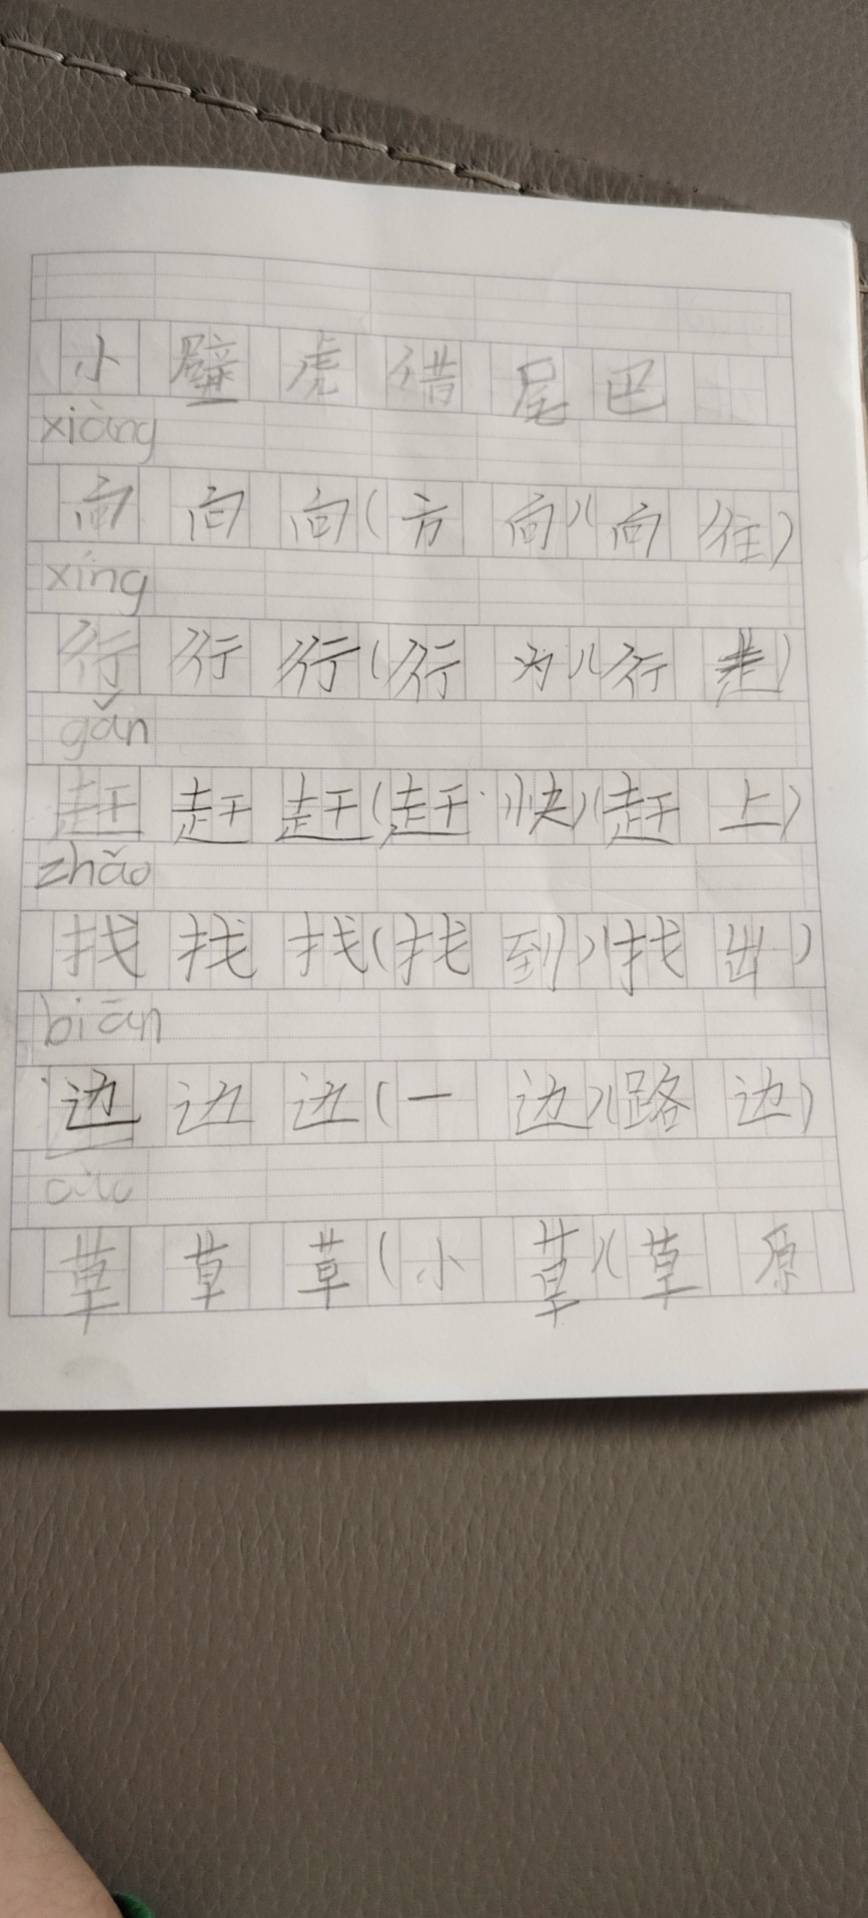 小壁虎借尾巴
xiàng
向向向(方向)(向往)
xíng
行行行(行为)(行走)
gǎn
赶赶赶(赶快)(赶上)
zhǎo
找找找(找到)(找出)
biān
边边边(一边)(路边)
草草草(小草)(草原